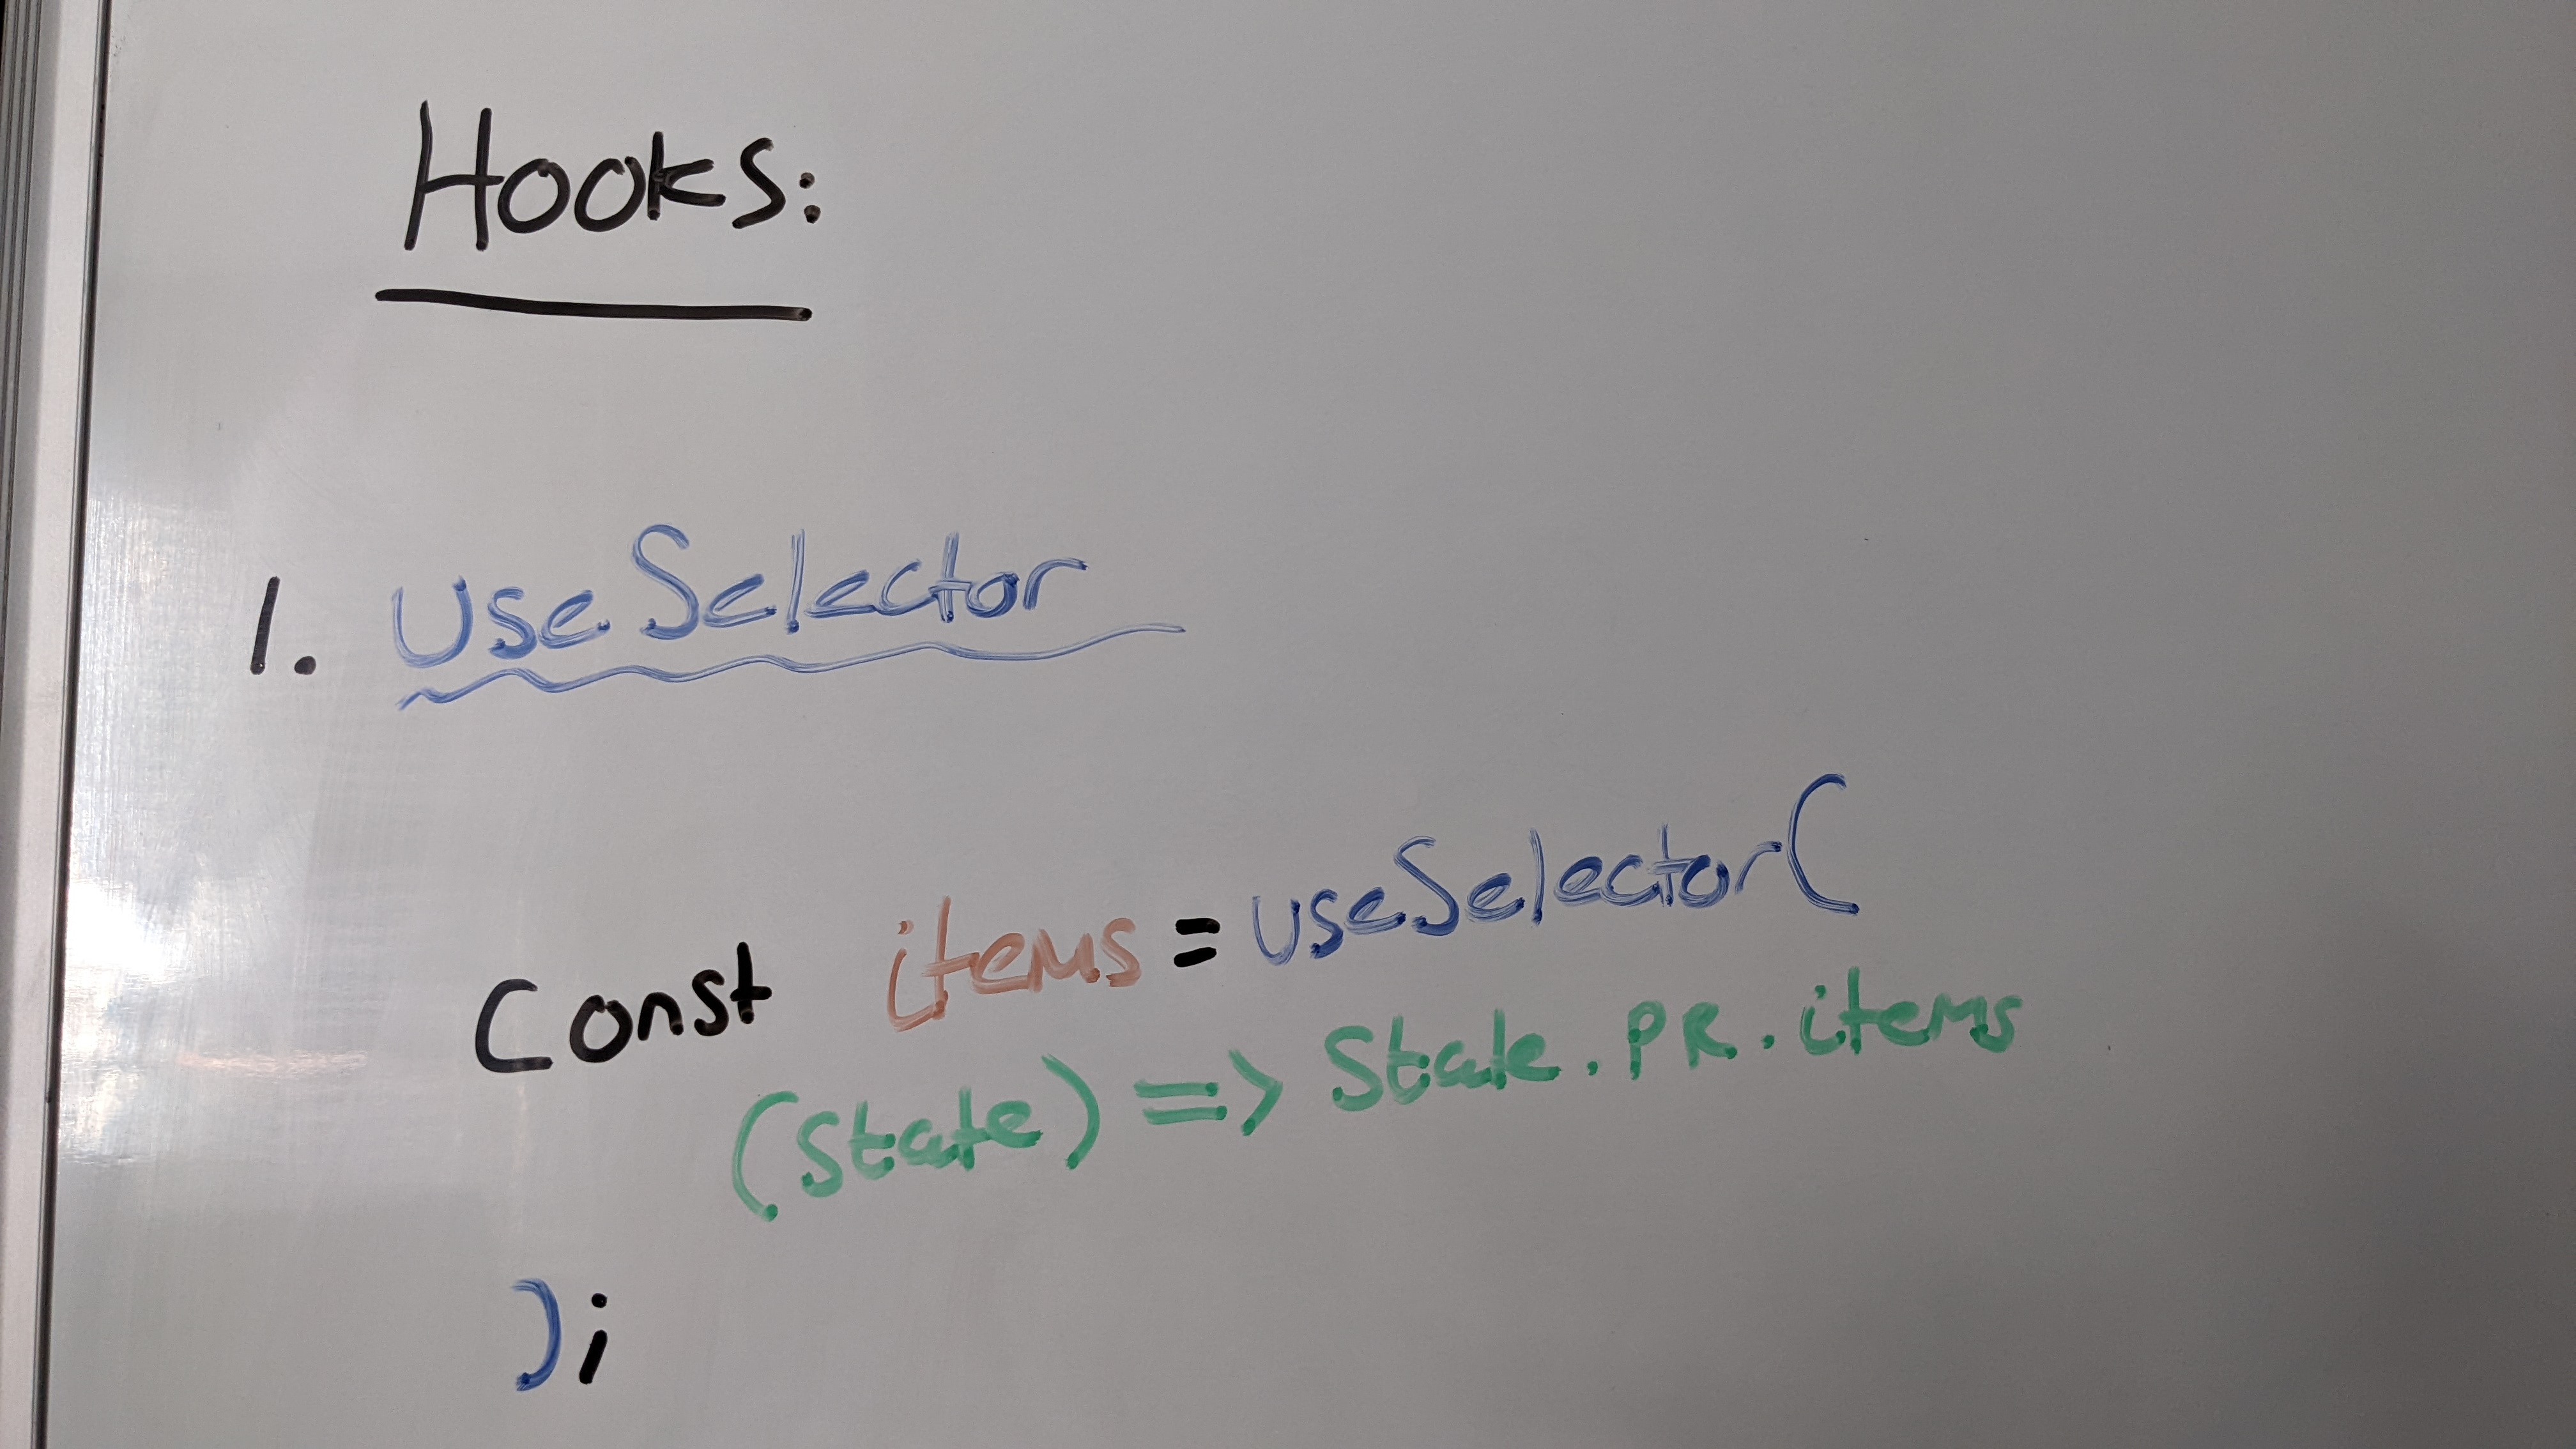 Hooks:
1. UseSelector
Const items = useSelector(
(State) => State.PR.items
);